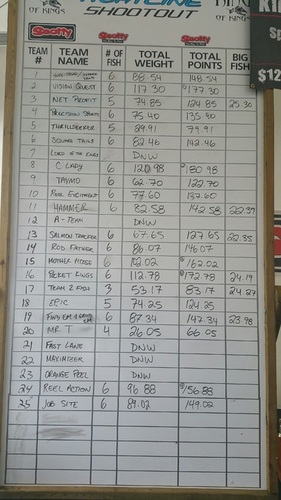 OF KINGS
SHOOTOUT
OF KINGS
$12
Scotty Scotty Scotty
TEAM # TEAM NAME # OF FISH TOTAL WEIGHT TOTAL POINTS BIG FISH
1 6 88.54 148.54
2 VISION QUEST 6 117.30 177.30
3 NET PROFIT 5 74.85 124.85 25.30
4 6 75.40 135.40
5 THRILLSEEKER 5 29.91 79.91
6 SQUARE TAILS 6 82.46 142.46
7 LORD OF THE KINGS DNW
8 C LADY 6 120.98 180.98
9 TAYMO 6 62.70 122.70
10 REEL EXCITEMENT 6 77.60 137.60
11 HAMMER 6 82.58 142.58 22.97
12 A-TEAM DNW
13 SALMON TRACKER 6 67.65 127.65 22.35
14 ROD FATHER 6 86.07 146.07
15 MOTHER MOOSE 6 102.02 162.02
16 POCKET KINGS 6 112.78 172.78 24.14
17 TEAM 2 FISH 3 53.17 83.17 24.27
18 EPIC 5 74.25 124.25
19 6 87.34 147.34 23.98
20 MR T 4 26.05 66.05
21 FAST LANE DNW
22 MAXIMIZER DNW
23 ORANGE PEEL DNW
24 REEL ACTION 6 96.88 156.88
25 JOB SITE 6 89.02 149.02